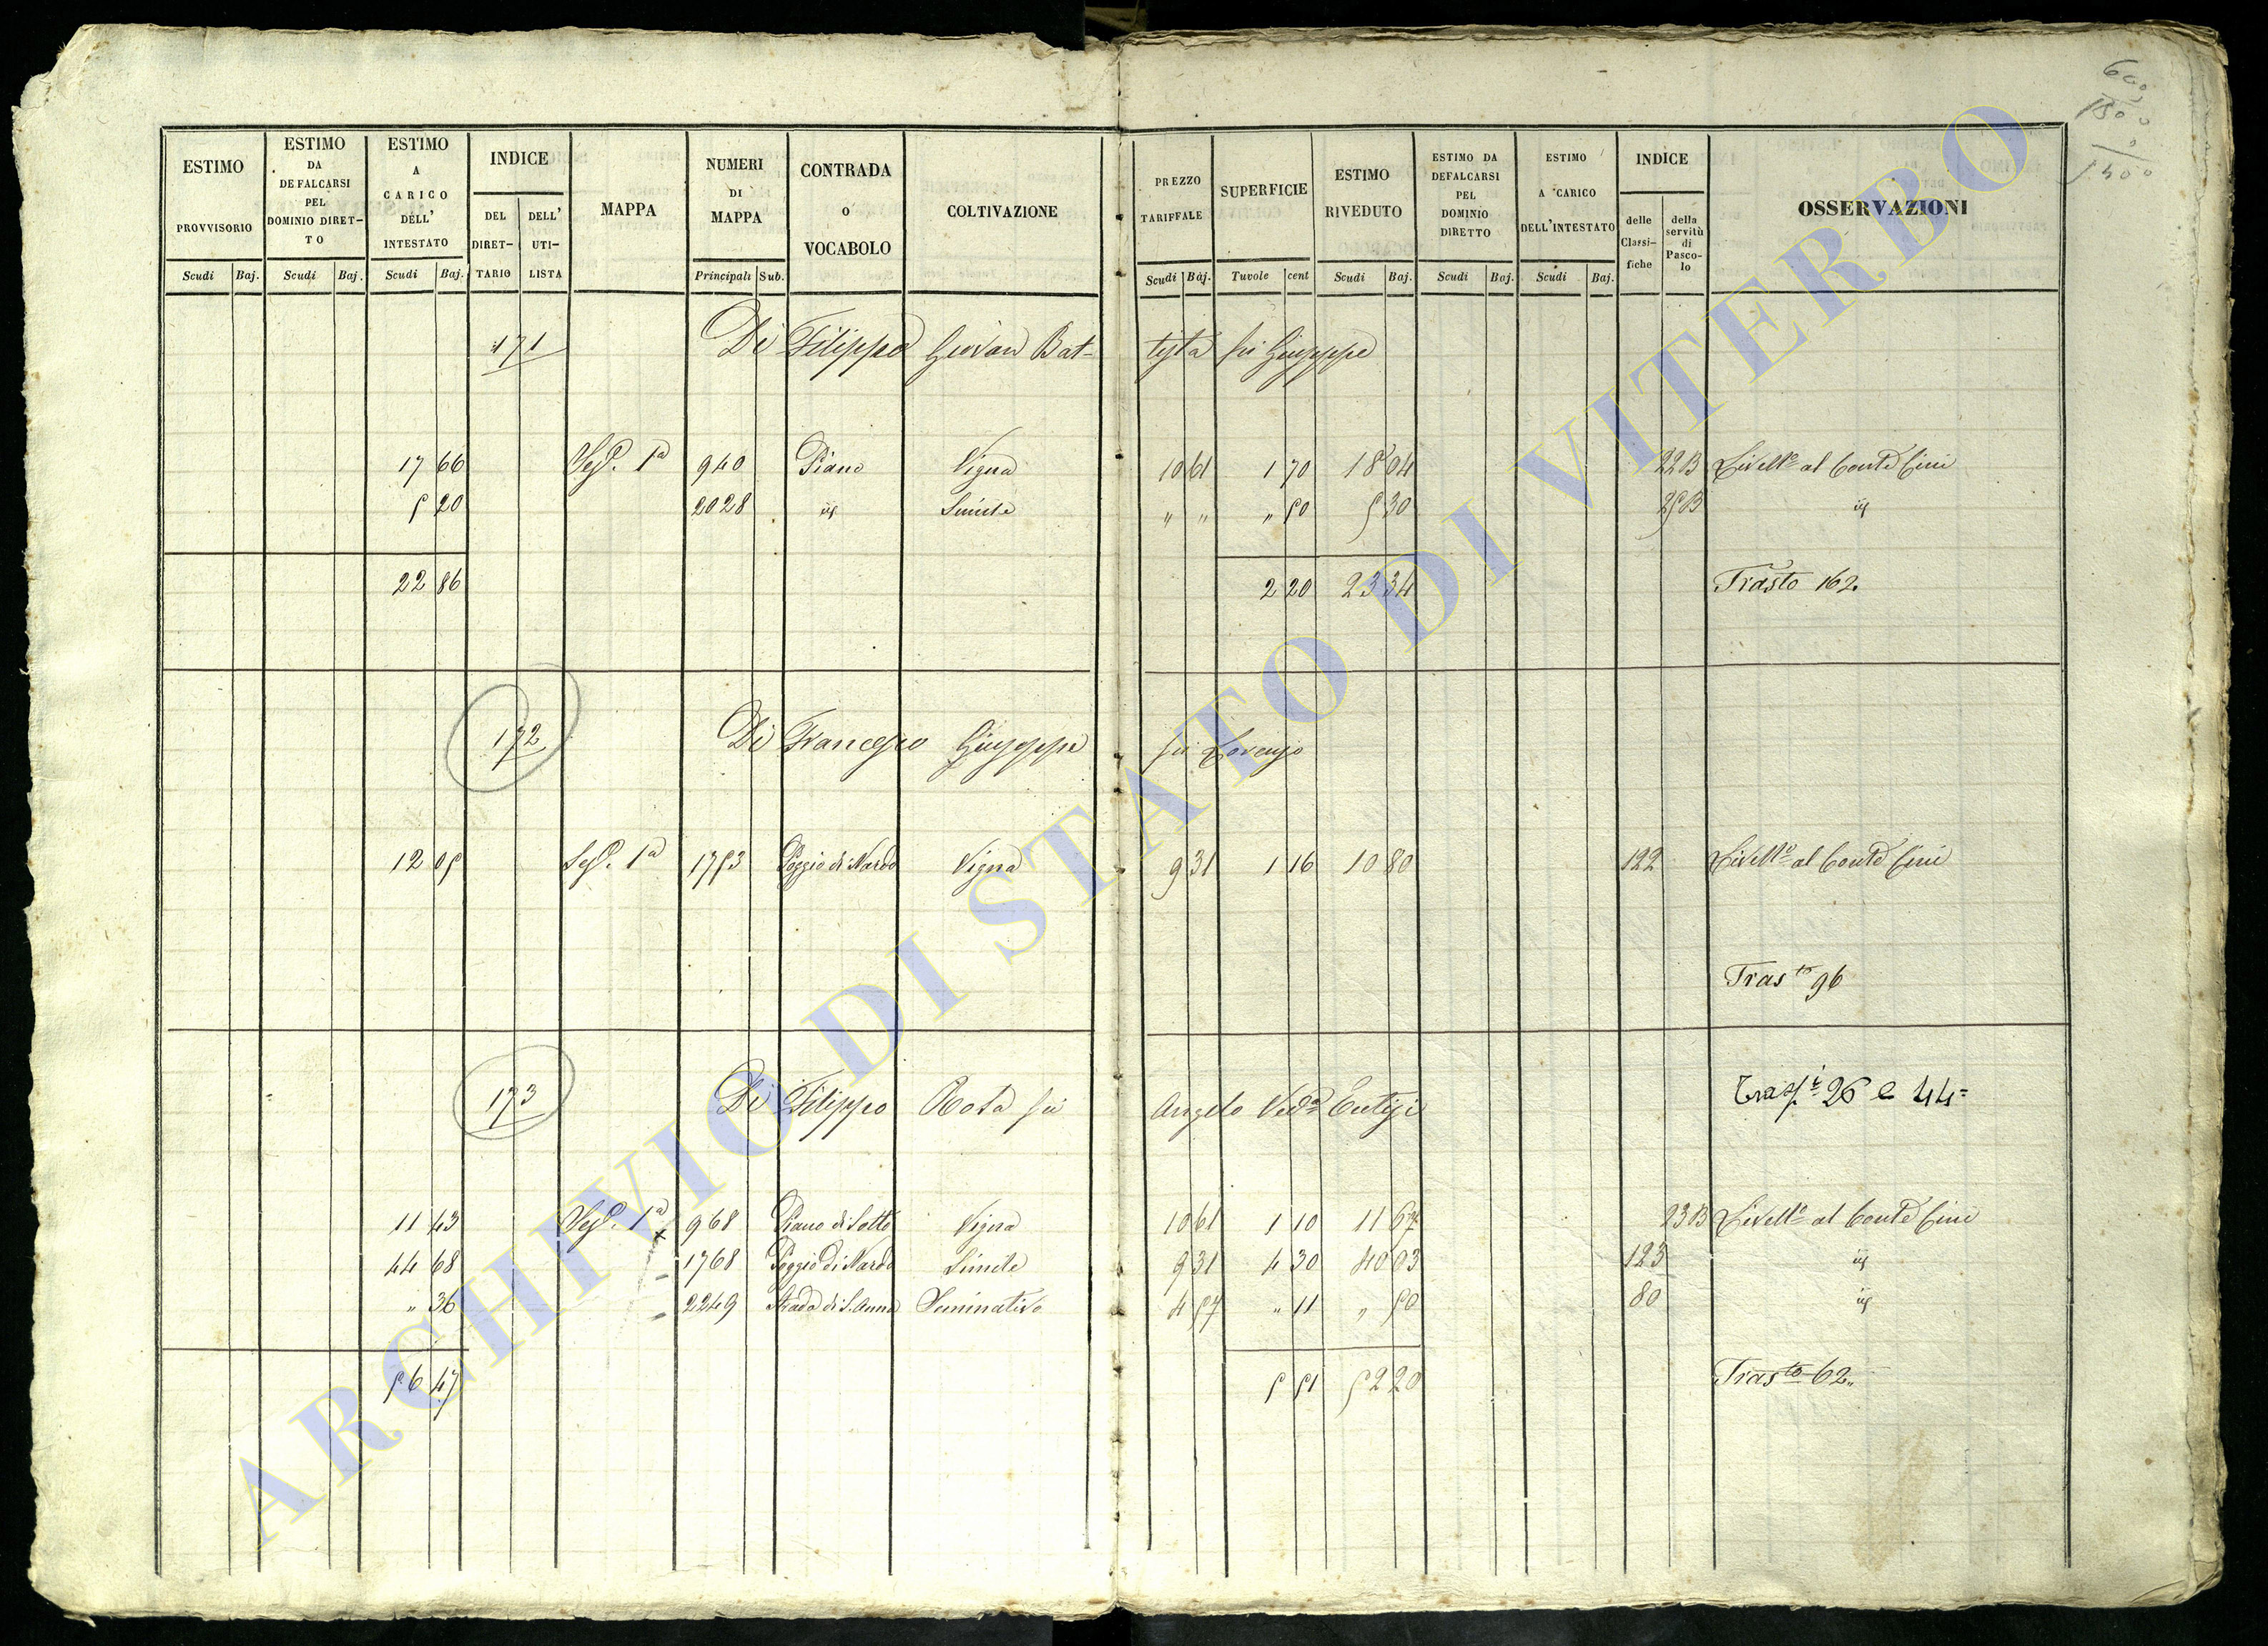 ESTIMO PROVVISORIO Scudi Baj.
ESTIMO DA DEFALCARSI PEL DOMINIO DIRET- TO Scudi Baj.
ESTIMO A CARICO DELL' INTESTATO Scudi Baj.
INDICE DEL DIRET- TARIO DELL' UTI- LISTA
MAPPA
NUMERI DI MAPPA Principali Sub.
CONTRADA o VOCABOLO
COLTIVAZIONE
PREZZO TARIFFALE Scudi Baj.
SUPERFICIE Tavole cent
ESTIMO RIVEDUTO Scudi Baj.
ESTIMO DA DEFALCARSI PEL DOMINIO DIRETTO Scudi Baj.
ESTIMO A CARICO DELL'INTESTATO Scudi Baj.
INDICE delle Classi- fiche della servitù di Pasco- lo
OSSERVAZIONI
171 Di Filippo Giovan Bat- tista fu Giuseppe
17 66 Sez. 1a 940 Piano Vigna 10 61 1 70 18 04 22B Livello al Conte Cini
5 20 2028 id Simile " " " 50 5 30 25B id
22 86 2 20 23 34 Trasto 162
172 Di Francesco Giuseppe fu Lorenzo
12 05 Sez. 1a 1753 Poggio di Nardo Vigna 9 31 1 16 10 80 122 Livello al Conte Cini
Trasto 96
173 Di Filippo Rosa fu Angelo Veda Eutizi Trasi 26 e 44=
11 43 Sez. 1a 968 Piano di Sotto Vigna 10 61 1 10 11 67 23B Livello al Conte Cini
44 68 1768 Poggio di Nardo Simile 9 31 4 30 40 03 123 id
" 36 2249 Strada di S. Anna Seminativo 4 57 " 11 " 50 80 id
56 47 5 51 52 20 Trasto 62
ARCHIVIO DI STATO DI VITERBO